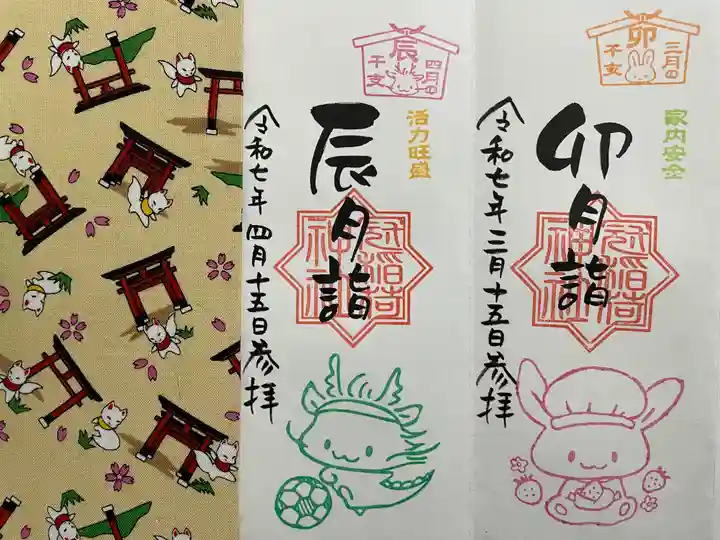 三月の
卯
干支
家内安全
卯月詣
冠稲荷
神社
令和七年三月十五日参拝
四月の
辰
干支
活力旺盛
辰月詣
冠稲荷
神社
令和七年四月十五日参拝